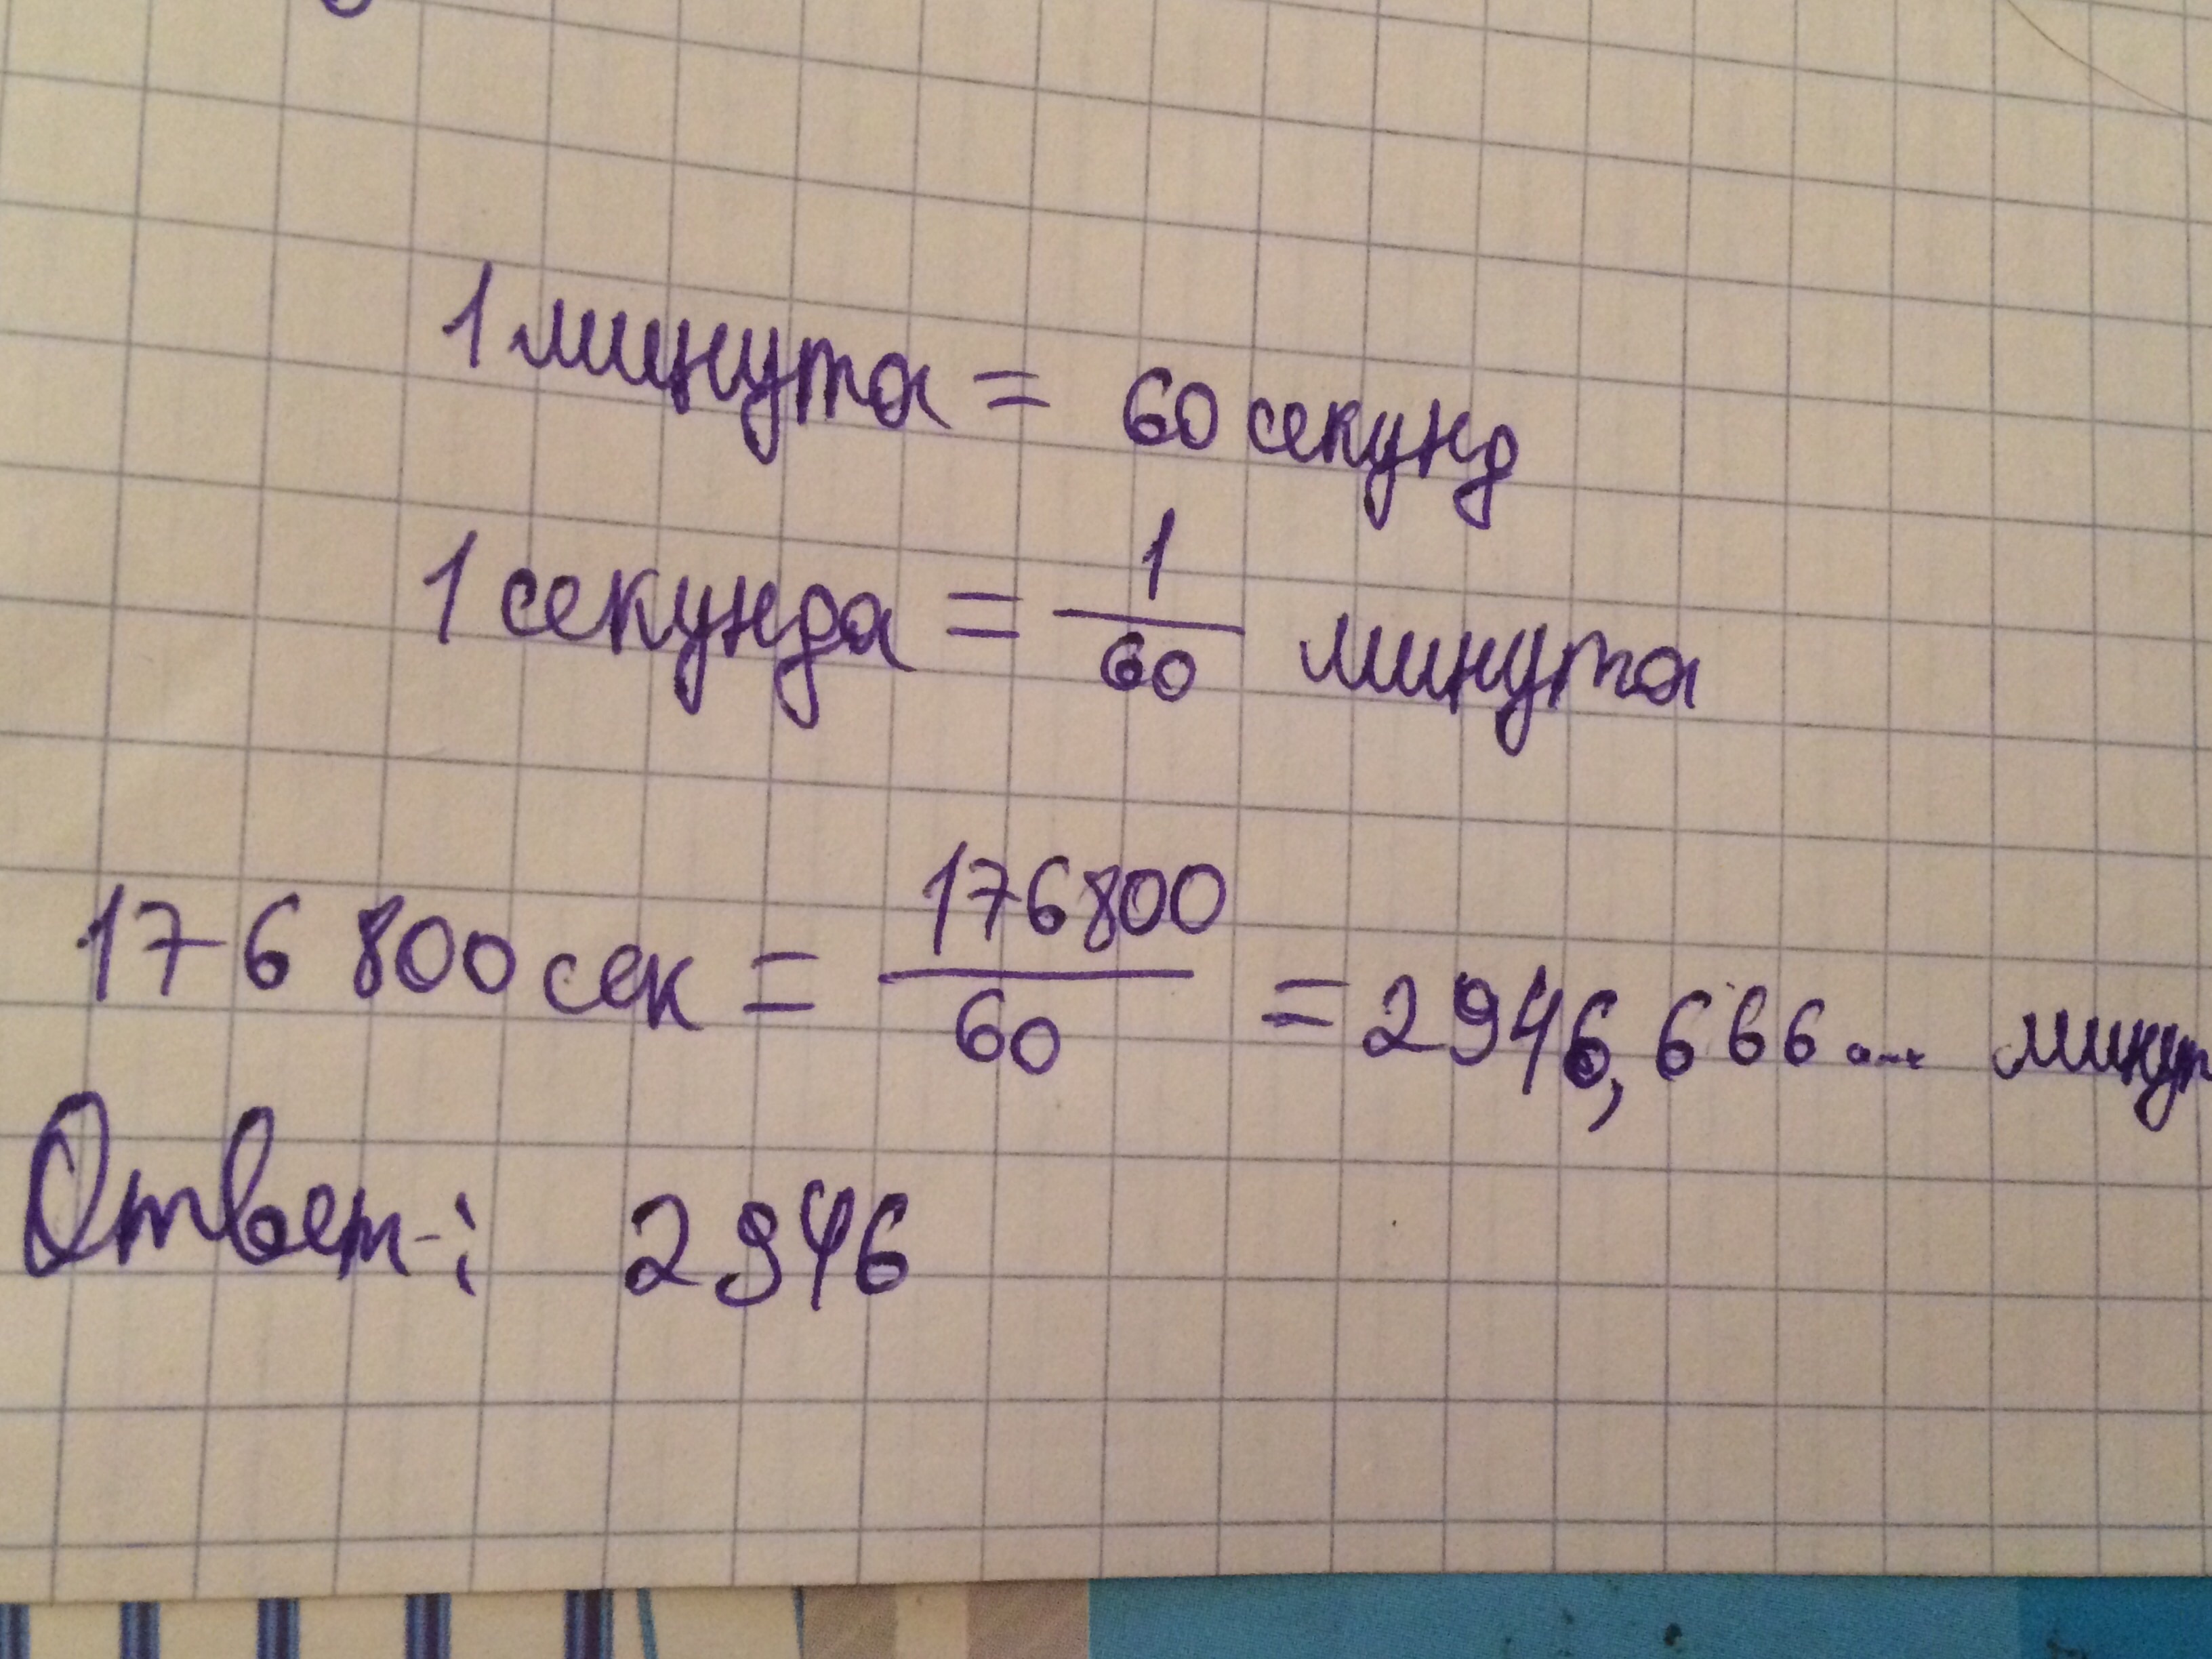 1 минута = 60 секунд
1 секунда = 1/60 минута
176 800 сек = 176800/60 = 2946,666... минут
Ответ: 2946